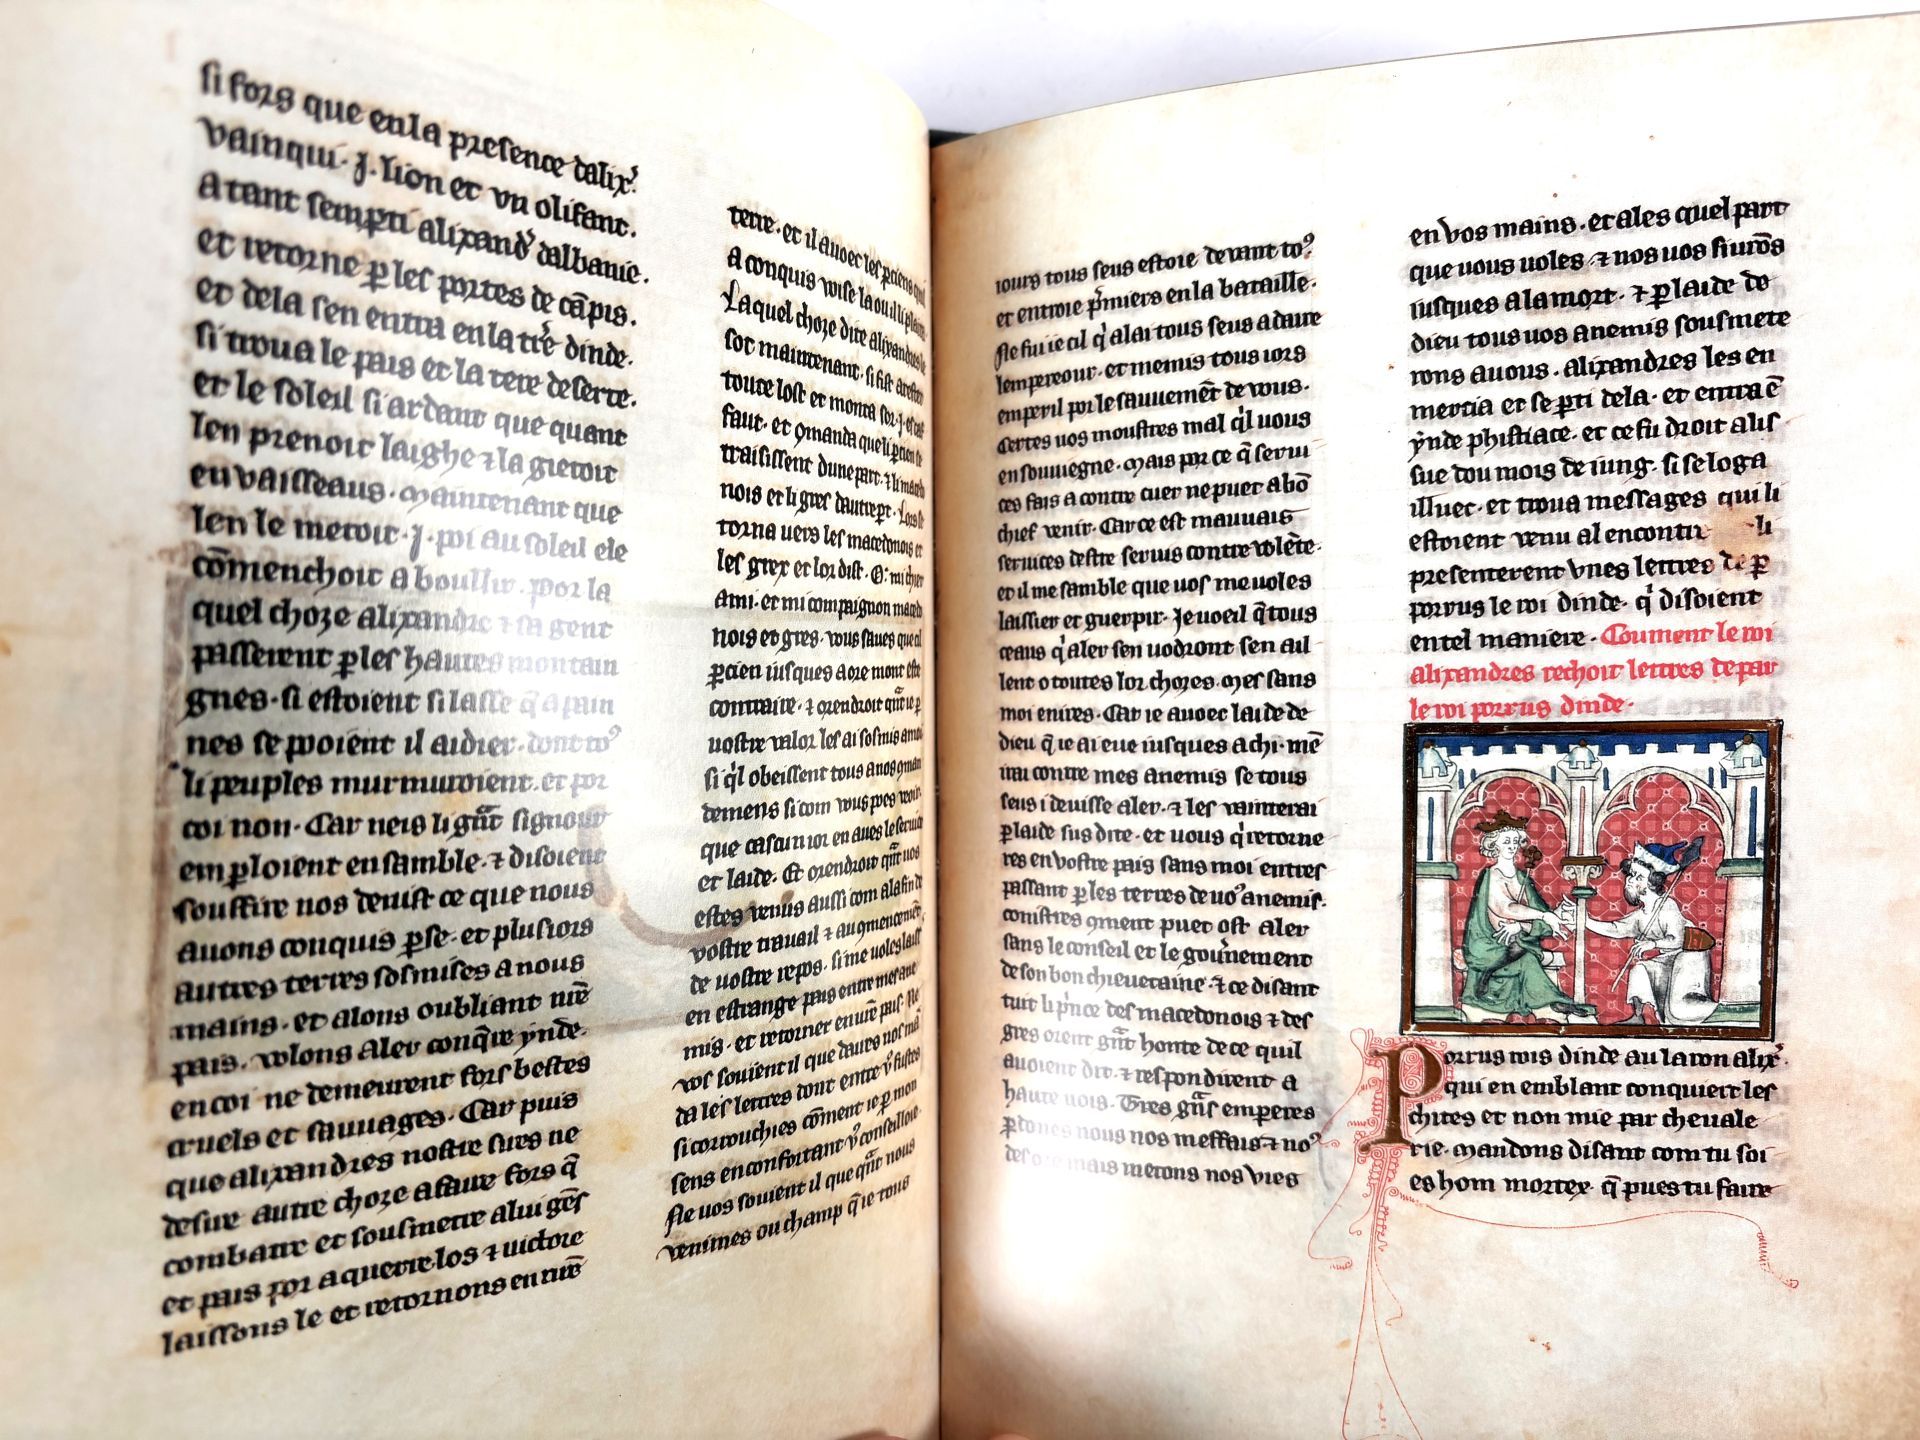 si fors que enla presence dalix᾽.
vainqui. J. lion et vn olifant.
atant semꝑti alixand᾽ dalbanie.
et retorne ꝑ les portes de cāpis.
et dela sen entra en la tr̄e dinde.
si troua le pais et la tere deserte.
et le soleil si ardant que quant
len prenoit laighe ⁊ la gietoit
en vaisseaus. Maintenant que
len le metoit. J. poi au soleil ele
cōmenchoit a boullir. por la
quel choze alixandre ⁊ sa gent
passerent ꝑ les hautes montain
gnes. si estoient si lasse q̄ a pain
nes se pooient il aidier. dont toꝰ
li peuples murmuroient. et por
coi non. Car neis li gn̄t signour
em ꝑloient ensamble. ⁊ disoient
souffire nos deuist ce que nous
auons conquis ꝑse. et plusiors
autres terres sosmises a nous
mains. et alons oubliant nr̄e
pais. volons aler conq̄re ynde.
en coi ne demeurent fors bestes
cruels et sauuages. Car puis
que alixandres nostre sires ne
desire autre choze afaire fors q̄
combatre et sousmetre a lui gēs
et pais por aquerre los ⁊ uictore
laissons le et retornons en nr̄e
terre. et il auoec les ꝑciens quil
a conquis voise la ou il li plaira
Laquel choze dite alixandres le
sot maintenant. si fist arester
toute lost et monta sor. J. escaf
faut. et ꝯmanda que li ꝑcien se
traisissent dune part. ⁊ li macedo
nois et li gres dautre ꝑt. Lors se
torna uers les macedonois et
les grex et lor dist. O. mi chier
ami. et mi compaignon macedo
nois et gres. vous saues que cil
ꝑcien iusques a ore mont este
contraire. ⁊ orendroit qn̄t ie ꝑ
uostre valor les ai sosmis a moi
si q᾽l obeissent tous a nos ꝯman
demens si com vous poes veoir
que cascun ior en aues le seruice
et laide. Et orendroit qn̄t uos
estes venus aussi com a la fin de
vostre trauail ⁊ au ꝯmencement
de uostre repos. si me uoles laissier
en estrange pais entre mes ane
mis. et retorner en ur̄e pais. Ne
vos souient il que daires nos man
da les lettres dont entre v᾽ fustes
si corrouchies cōment ie ꝑ mon
sens en confortant v᾽ conseilloie.
Ne uos souient il que qn̄t nous
venimes ou champ q̄ ie tous
iours tous seus estoie deuant toꝰ
et entroie pr̄miers en la bataille.
Ne fui ie cil q᾽ alai tous seus a daire
lempereour. et me mis tous iors
em peril por le sauuemēt de vous.
Certes uos moustres mal q᾽l uous
en souuiegne. Mais por ce q̄ serui
ces fais a contre cuer ne puet a bō
chief venir. Car ce est mauuais
seruices destre seruis contre volēte.
et il me samble que uos me uoles
laissier et guerpir. Je uoeil q̄ tous
ceaus q᾽ aler sen uodront sen ail
lent o toutes lor chozes. Mes sans
moi enires. Car ie auoec laide de
dieu q̄ ie ai eue iusques a chi. mē
irai contre mes anemis se tous
seus i deuisse aler. ⁊ les vainterai
ꝑ laide sus dite. et uous q᾽ retorne
res en vostre pais sans moi entres
passant ꝑ les terres de uoꝰ anemis.
conistres ꝯment puet ost aler
sans le conseil et le gou᾽nement
de son bon chieuetaine. ⁊ ce disant
tuit li p᾽nce des macedonois ⁊ des
gres orent gn̄t honte de ce quil
auoient dit. ⁊ respondirent a
haute uois. Tres gn̄s emperes
ꝑdones nous nos meffais ⁊ noꝰ
des ore mais metons nos vies
en vos mains. et ales quel part
que uous uoles ⁊ nos uos siurōs
iusques a la mort. ⁊ ꝑ laide de
dieu tous uos anemis sousmete
rons a uous. Alixandres les en
mercia et se ꝑti dela. et entra ē
ynde phistiace. et ce fu droit a lis
sue dou mois de iung. si se loga
illuec. et troua messages qui li
estoient venu al encontre li
presenterent vnes lettres de ꝑ
porrus le roi dinde. q᾽ disoient
en tel maniere. Coument le roi
alixandres rechoit lettres de par
le roi porrus dinde.
Porrus rois dinde au laron alix᾽.
qui en emblant conquiert les
chites et non mie par cheuale
rie. Mandons disant com tu soi
es hom mortex. q̄ pues tu faire